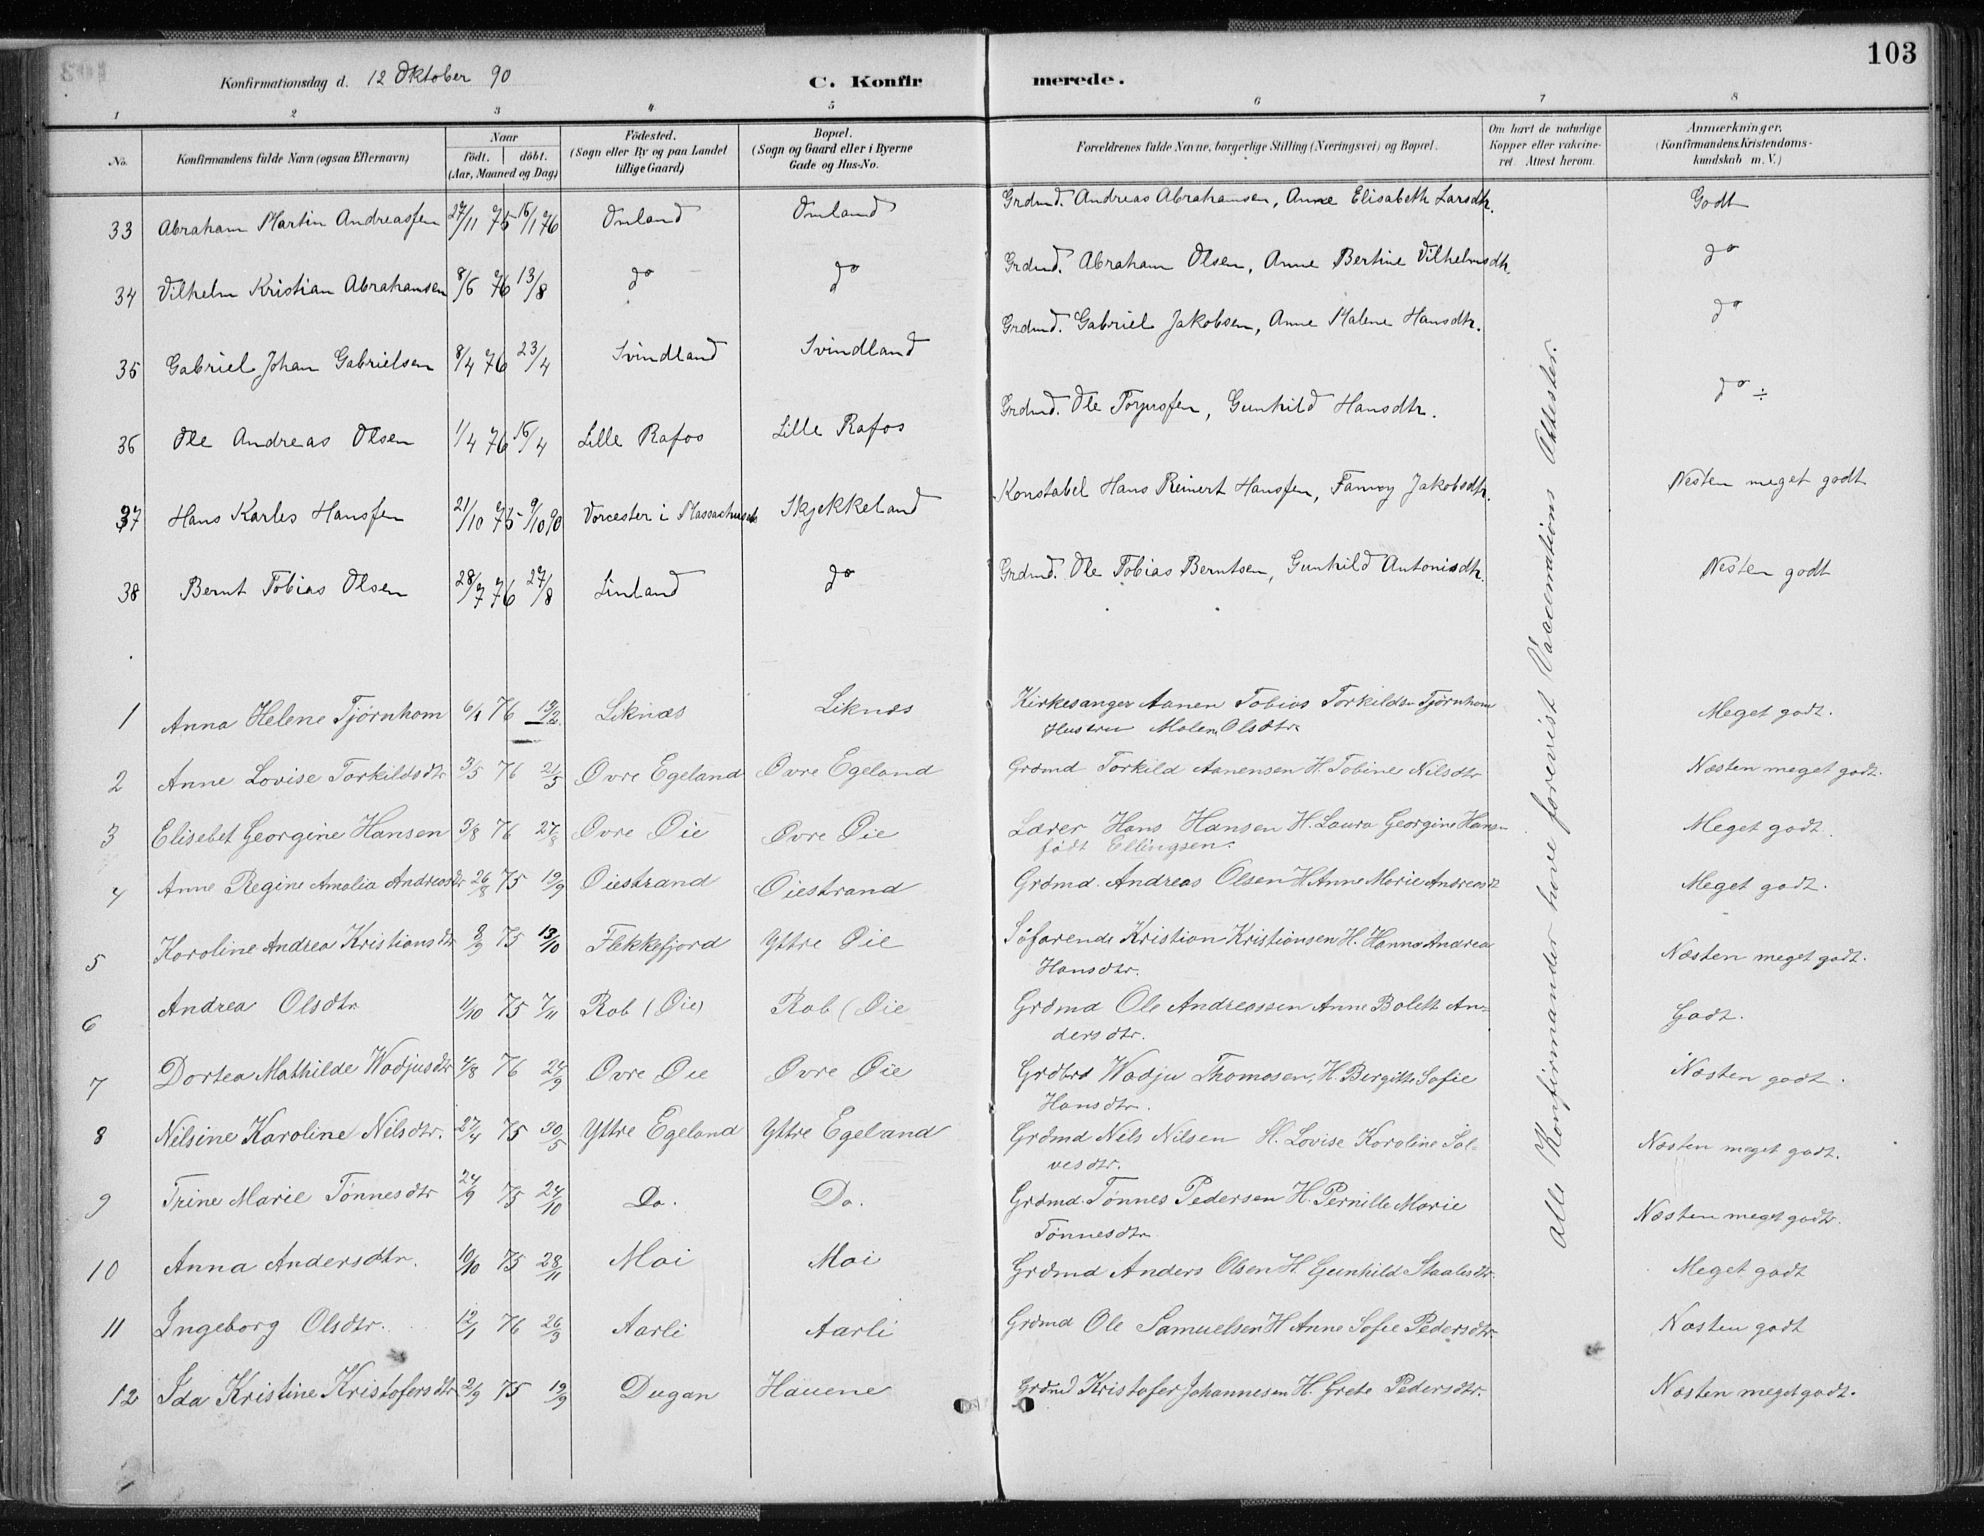 103
Konfirmationsdag d. 12 Oktober 90
C. Konfirmerede.
1 2 3 4 5 6 7 8
No. Konfirmandens fulde Navn (ogsaa Efternavn) Naar födt. döbt. (Aar, Maaned og Dag) Födested. (Sogn eller By og paa Landet tillige Gaard) Bopæl. (Sogn og Gaard eller i Byerne Gade og Hus-No. Forældrenes fulde Navne, borgerlige Stilling (Næringsvei) og Bopæl. Om havt de naturlige Kopper eller vakcineret. Attest herom. Anmærkninger. (Konfirmandens Kristendomskundskab m. V.)
33 Abraham Martin Andreassen 27/11 75 16/1 76 Omland Omland Grdmd. Andreas Abrahamsen, Anne Elisabeth Larsdtr. Godt
34 Vilhelm Kristian Abrahamsen 8/6 76 13/8 do do Grdmd. Abraham Olsen, Anne Bertine Vilhelmsdtr. do
35 Gabriel Johan Gabrielsen 8/4 76 23/4 Svindland Svindland Grdmd. Gabriel Jakobsen, Anne Malene Hansdtr. do
36 Ole Andreas Olsen 1/4 76 16/4 Lille Rafos Lille Rafos Grdmd. Ole Torjussen, Gunhild Hansdtr. do ÷
37 Hans Karles Hanssen 21/10 75 9/10 90 Vorcester i Massachusets Skjekkeland Konstabel Hans Reinert Hanssen, Fanny Jakobsdtr. Nesten meget godt
38 Bernt Tobias Olsen 28/7 76 27/8 Linland do Grdmd. Ole Tobias Berntsen, Gunhild Antonisdtr. Nesten godt
1 Anna Helene Tjørnhom 6/1 76 13/2 Liknæs Liknes Kirkesanger Aanen Tobias Torkilds. Tjørnhom
Hustru Malen Olsdtr.
2 Anne Lovise Torkildsdtr 3/5 76 21/5 Øvre Egeland Øvre Egeland Grdmd Torkild Aanensen H. Tobine Nilsdtr Næsten meget godt.
Meget godt.
3 Elisebet Georgine Hansen 3/8 76 27/8 Øvre Øie Øvre Øie Lærer Hans Hansen H. Laura Georgine Hansn Meget godt.
født Ellingsen.
4 Anne Regine Amalia Andreasdtr 26/8 75 19/9 Øiestrand Øiestrand Grdmd. Andreas Olsen H. Anne Marie Andreasdt Meget godt.
5 Karoline Andrea Kristiansdtr 8/9 75 13/10 Flekkefjord Yttre Øie Søfarende Kristian Kristiansen H. Hanna Andrea Næsten meget godt.
Hansdtr.
6 Andrea Olsdtr 11/10 75 7/11 Rob (Øie) Rob (Øie Grdmd Ole Andreassen Anne Bolette An= Godt.
dersdtr.
7 Dortea Mathilde Wadjusdtr 4/8 76 24/9 Øvre Øie Øvre Øie Grdbrd Wadju Thomasen, H. Bergitte Sofie Næsten godt.
Hansdtr.
8 Nilsine Karoline Nilsdtr. 27/4 75 30/5 Yttre Egeland Yttre Egeland Grdmd Nils Nilsen H. Lovise Karoline Sal= Næsten meget godt.
vesdtr.
9 Trine Marie Tønnesdtr 24/9 75 24/10 Do. Do. Grdmd. Tønnes Pedersen H. Pernille Marie Næsten meget godt.
Tønnesdtr
10 Anna Andersdtr. 10/10 75 28/11 Moi Moi Grdmd Anders Olsen H. Gunhild Staalesdtr. Meget godt
11 Ingeborg Olsdtr. 12/1 76 26/3 Aarli Aarli Grdmd Ole Samuelsen H Anne Sofie Pedersdtr Næsten godt
12 Ida Kristine Kristofersdtr 2/9 75 19/9 Dugan Hauene Grdmd Kristofer Johannesen H. Grete Pedersdtr. Næsten meget godt.
Alle Konfirmander have forevist Vaccinations Attester.